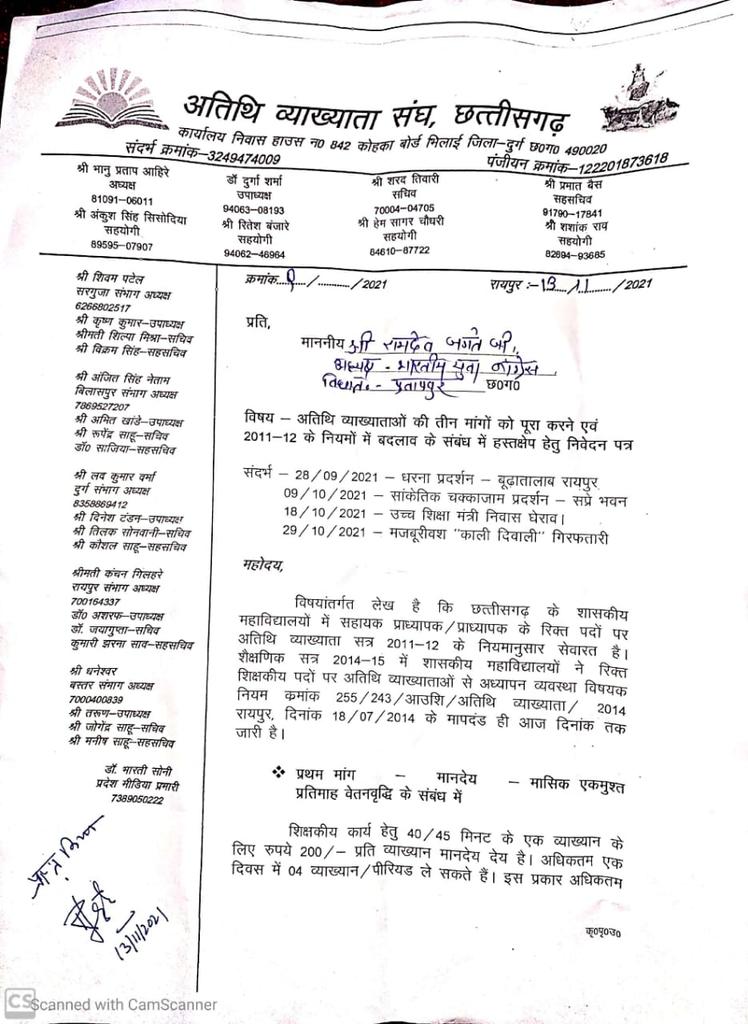 अतिथि व्याख्याता संघ, छत्तीसगढ़
कार्यालय निवास हाउस न0 842 कोहका बोर्ड भिलाई जिला-दुर्ग छ0ग0 490020
संदर्भ क्रमांक-3249474009
पंजीयन क्रमांक-122201873618
श्री भानु प्रताप आहिरे
अध्यक्ष
81091-06011
श्री अंकुश सिंह सिसोदिया
सहयोगी
89595-07907
डॉ दुर्गा शर्मा
उपाध्यक्ष
94063-08193
श्री रितेश बंजारे
सहयोगी
94062-46964
श्री शरद तिवारी
सचिव
70004-04705
श्री हेम सागर चौधरी
सहयोगी
84610-87722
श्री प्रभात बैस
सहसचिव
91790-17841
श्री शशांक राव
सहयोगी
82694-93685
श्री शिवम पटेल
सरगुजा संभाग अध्यक्ष
6266802517
श्री कृष्ण कुमार-उपाध्यक्ष
श्रीमती शिल्पा मिश्रा-सचिव
श्री विक्रम सिंह-सहसचिव
श्री अंजित सिंह नेताम
बिलासपुर संभाग अध्यक्ष
7869527207
श्री अमित खांडे-उपाध्यक्ष
श्री रूपेंद्र साहू-सचिव
डॉ0 साजिया-सहसचिव
श्री लव कुमार वर्मा
दुर्ग संभाग अध्यक्ष
8358869412
श्री दिनेश टंडन-उपाध्यक्ष
श्री तिलक सोनवानी-सचिव
श्री कौशल साहू-सहसचिव
श्रीमती कंचन गिलहरे
रायपुर संभाग अध्यक्ष
700164337
डॉ0 अशरफ-उपाध्यक्ष
डॉ. जयागुप्ता-सचिव
कुमारी झरना साव-सहसचिव
श्री धनेश्वर
बस्तर संभाग अध्यक्ष
7000400839
श्री तरूण-उपाध्यक्ष
श्री जोगेंद्र साहू-सचिव
श्री मनीष साहू-सहसचिव
डॉ. भारती सोनी
प्रदेश मीडिया प्रभारी
7389050222
13/11/2021
क्रमांक ....../............/2021
रायपुर :- 13/11/2021
प्रति,
माननीय श्री रामदेव जगते जी,
अध्यक्ष - भारतीय युवा कांग्रेस
प्रतापपुर छ0ग0
विषय – अतिथि व्याख्याताओं की तीन मांगों को पूरा करने एवं
2011-12 के नियमों में बदलाव के संबंध में हस्तक्षेप हेतु निवेदन पत्र
संदर्भ – 28/09/2021 – धरना प्रदर्शन – बूढ़ातालाब रायपुर
09/10/2021 – सांकेतिक चक्काजाम प्रदर्शन – सप्रे भवन
18/10/2021 – उच्च शिक्षा मंत्री निवास घेराव।
29/10/2021 – मजबूरीवश "काली दिवाली" गिरफतारी
महोदय,
विषयांतर्गत लेख है कि छत्तीसगढ़ के शासकीय
महाविद्यालयों में सहायक प्राध्यापक/प्राध्यापक के रिक्त पदों पर
अतिथि व्याख्याता सत्र 2011-12 के नियमानुसार सेवारत है।
शैक्षणिक सत्र 2014-15 में शासकीय महाविद्यालयों ने रिक्त
शिक्षकीय पदों पर अतिथि व्याख्याताओं से अध्यापन व्यवस्था विषयक
नियम कमांक 255/243/आउशि/अतिथि व्याख्याता/ 2014
रायपुर, दिनांक 18/07/2014 के मापदंड ही आज दिनांक तक
जारी है।
❖ प्रथम मांग – मानदेय – मासिक एकमुश्त
प्रतिमाह वेतनवृद्धि के संबंध में
शिक्षकीय कार्य हेतु 40/45 मिनट के एक व्याख्यान के
लिए रुपये 200/- प्रति व्याख्यान मानदेय देय है। अधिकतम एक
दिवस में 04 व्याख्यान/पीरियड ले सकते हैं। इस प्रकार अधिकतम
कृ0पृ0उ0
CS Scanned with CamScanner